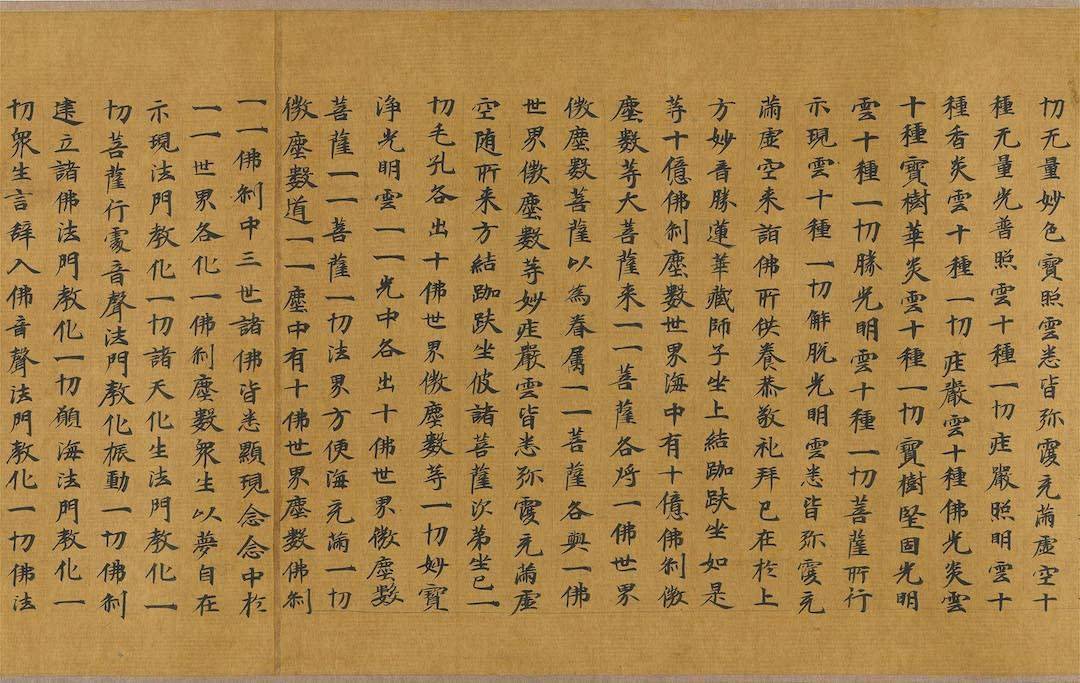 切无量妙色寶照雲悉皆弥覆充滿虛空十
種无量光普照雲十種一切莊嚴照明雲十
種香炎雲十種一切莊嚴雲十種佛光炎雲
十種寶樹華炎雲十種一切寶樹堅固光明
雲十種一切勝光明雲十種一切菩薩所行
示現雲十種一切解脫光明雲悉皆弥覆充
滿虛空来詣佛所供養恭敬礼拜已在於上
方妙音勝蓮華藏師子坐上結跏趺坐如是
等十億佛刹塵數世界海中有十億佛刹微
塵數等大菩薩来一一菩薩各將一佛世界
微塵數菩薩以為眷屬一一菩薩各興一佛
世界微塵數等妙莊嚴雲皆悉弥覆充滿虛
空随所来方結跏趺坐彼諸菩薩次第坐已一
切毛孔各出十佛世界微塵數等一切妙寶
淨光明雲一一光中各出十佛世界微塵數
菩薩一一菩薩一切法界方便海充滿一切
微塵數道一一塵中有十佛世界塵數佛刹
一一佛刹中三世諸佛皆悉顯現念念中於
一一世界各化一佛刹塵數衆生以夢自在
示現法門教化一切諸天化生法門教化一
切菩薩行處音聲法門教化振動一切佛刹
建立諸佛法門教化一切願海法門教化一
切衆生言辭入佛音聲法門教化一切佛法